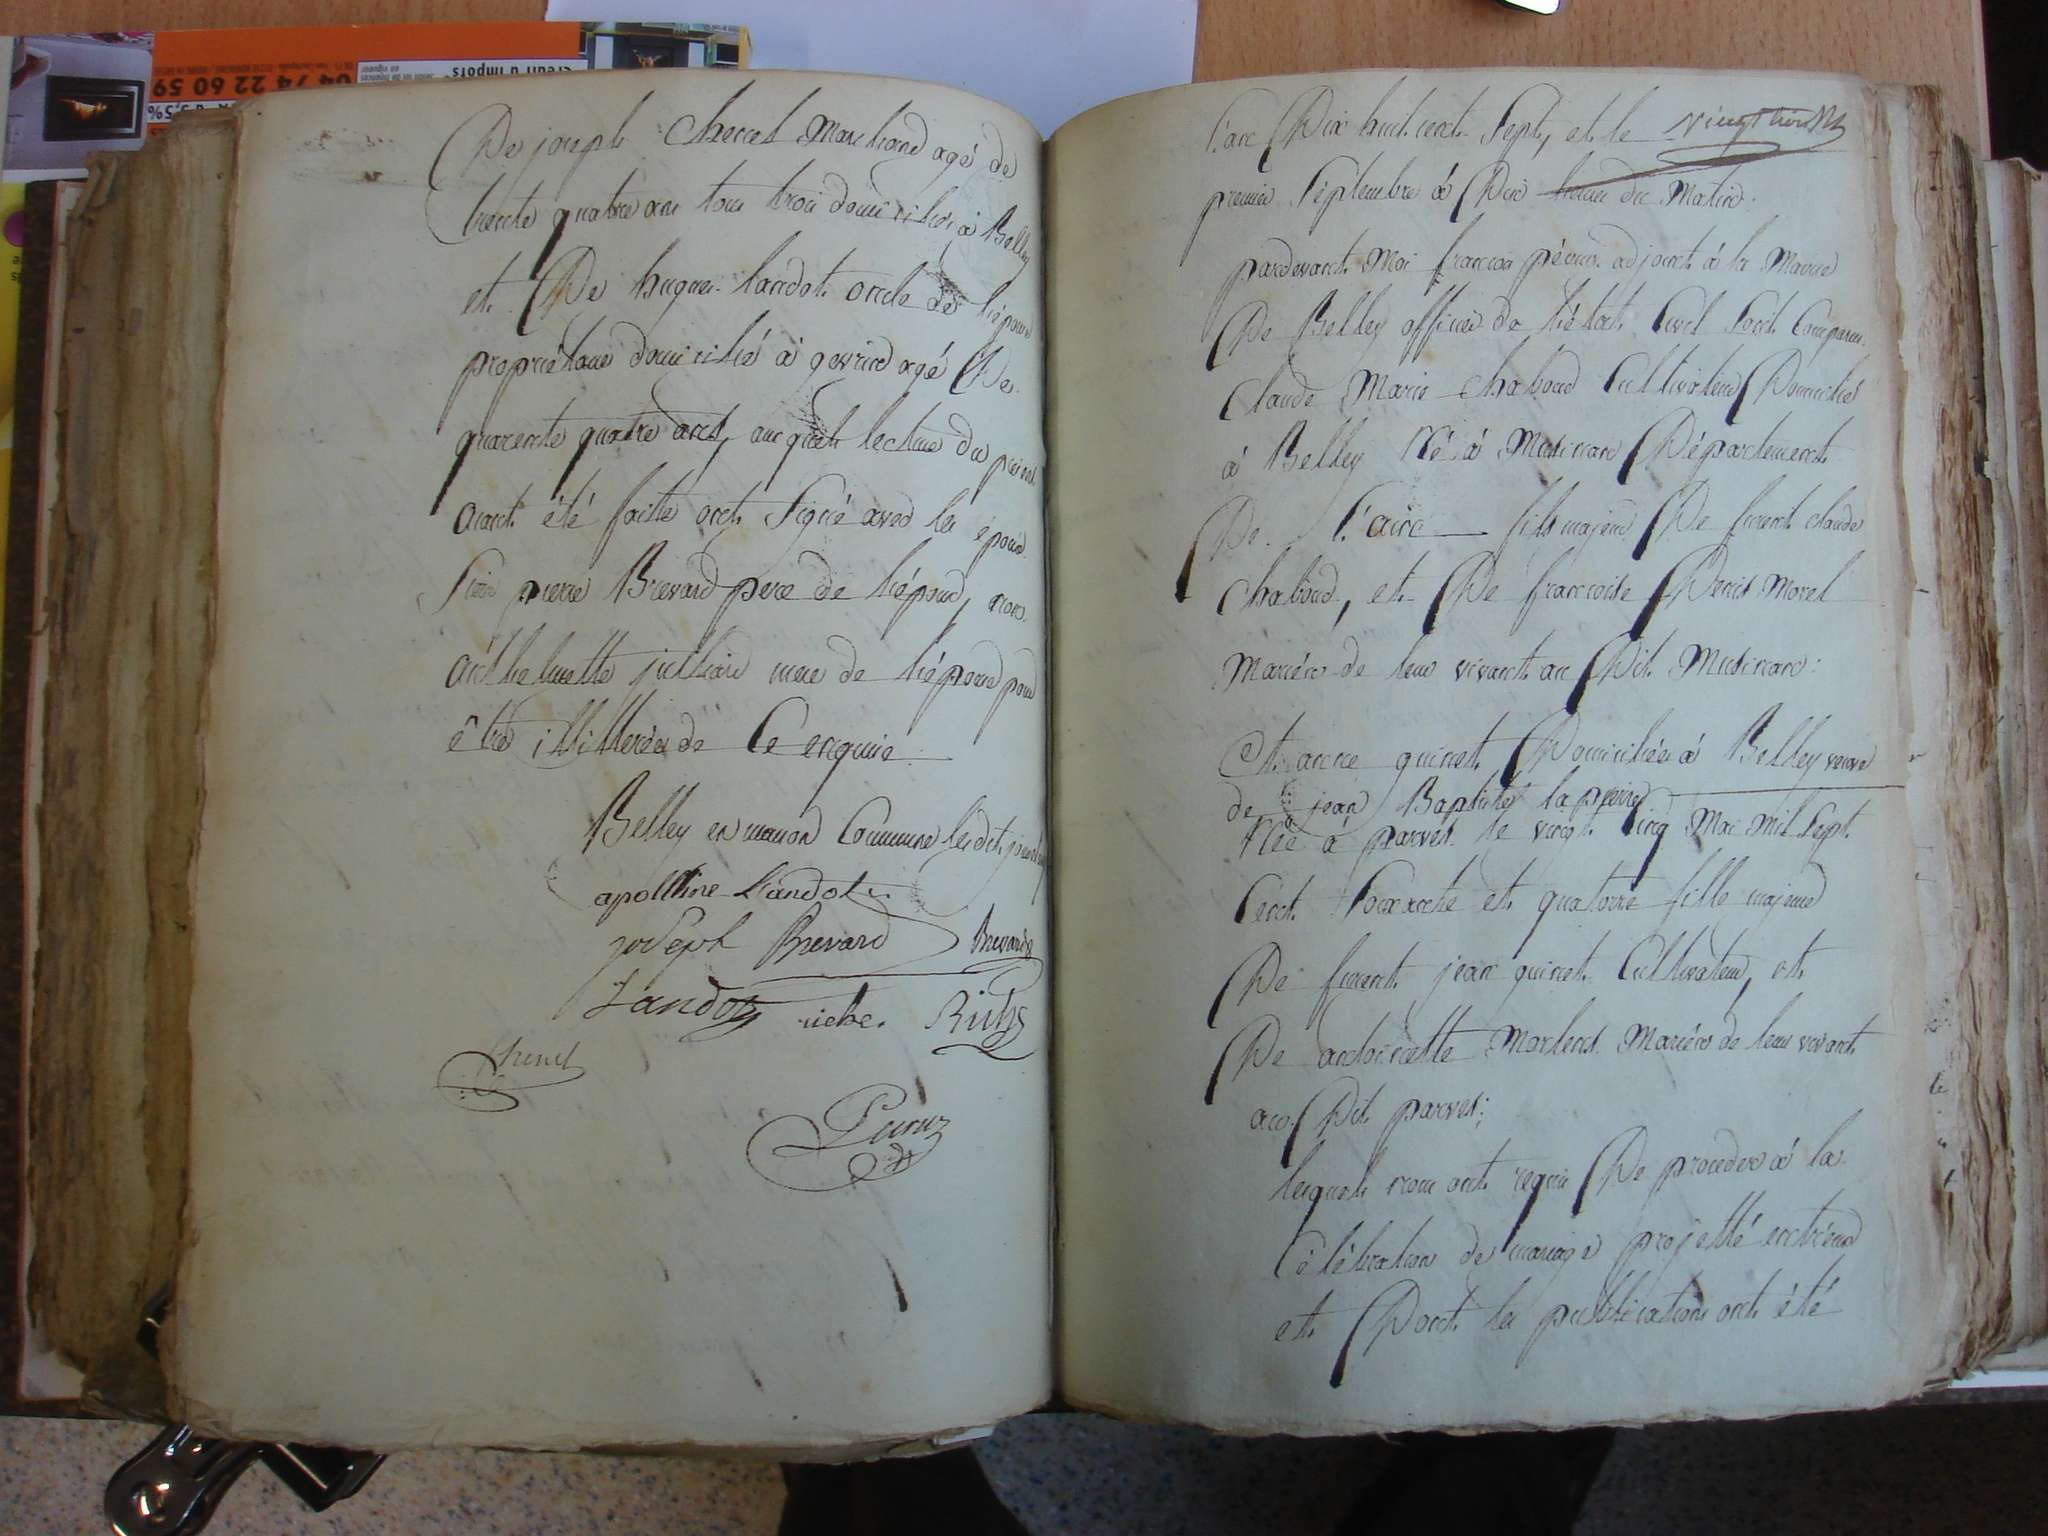 04 74 22 60 59
Crédit d'impôts
De joseph Chenel Marchand agé de
trente quatre ans tous trois domiciliés à Belley
et De hugues landot oncle de l'épouse
propriétaire domicilié à gevrin agé De
quarente quatre ans, auxquels lecture du présent
aiant été faitte ont signé avec les époux
pierre Brevard pere de l'époux, non
mere de l'épouse pour
être illitterés de Ce enquis.
Belley en maison Commune lesdits jour
apolline Landot
joseph Brevard Brevard
Landoz Richs
Chenel
l'an Dix huit cent Sept, et le vingt
premier Septembre à Dix heures du Matin.
pardevant Moi françois adjoint à la Mairie
De Belley officier de l'état Civil sont Comparus
Claude Marie Chaboud Cultivateur Domicilié
à Belley Né à Musinian Département
De l'ain fils majeur De furent Claude
Chaboud, et De françoise Denis Morel
Mariés de leur vivant au Dit Musinian:
Et anne quinet Domiciliée à Belley veuve
de jean Baptiste lapierre
Née à parves le vingt Cinq Mai Mil Sept
Cent Soixante et quatorze fille majeure
De furent jean quinet Cultivateur, et
De antoinette Martend Mariés de leur vivant
au Dit parves;
lesquels nous ont requis De proceder à la
Célébration de mariage projetté entr'eux
et Dont les publications ont été